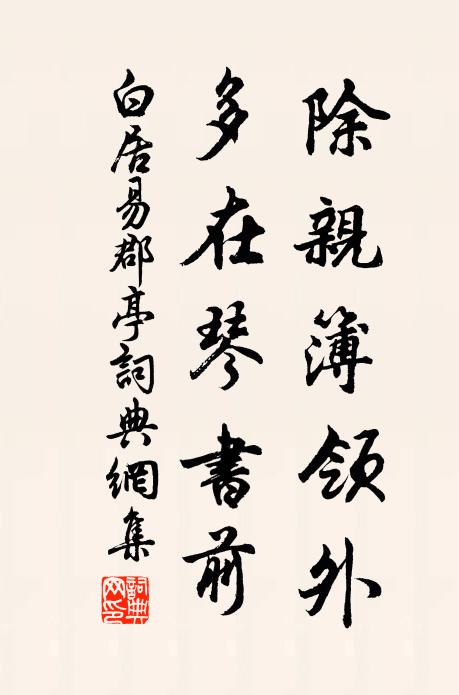 除親簿領外
多在琴書前
白居易郡亭詞典網集
詞典
网印